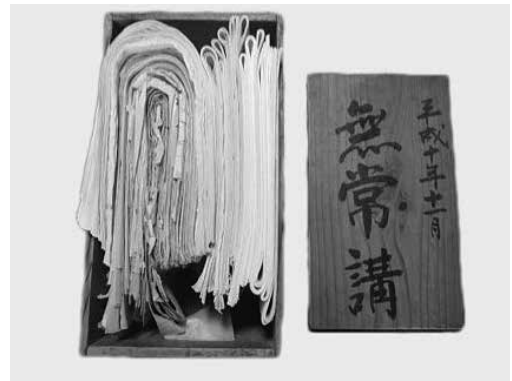 平成十年十一月
無常講